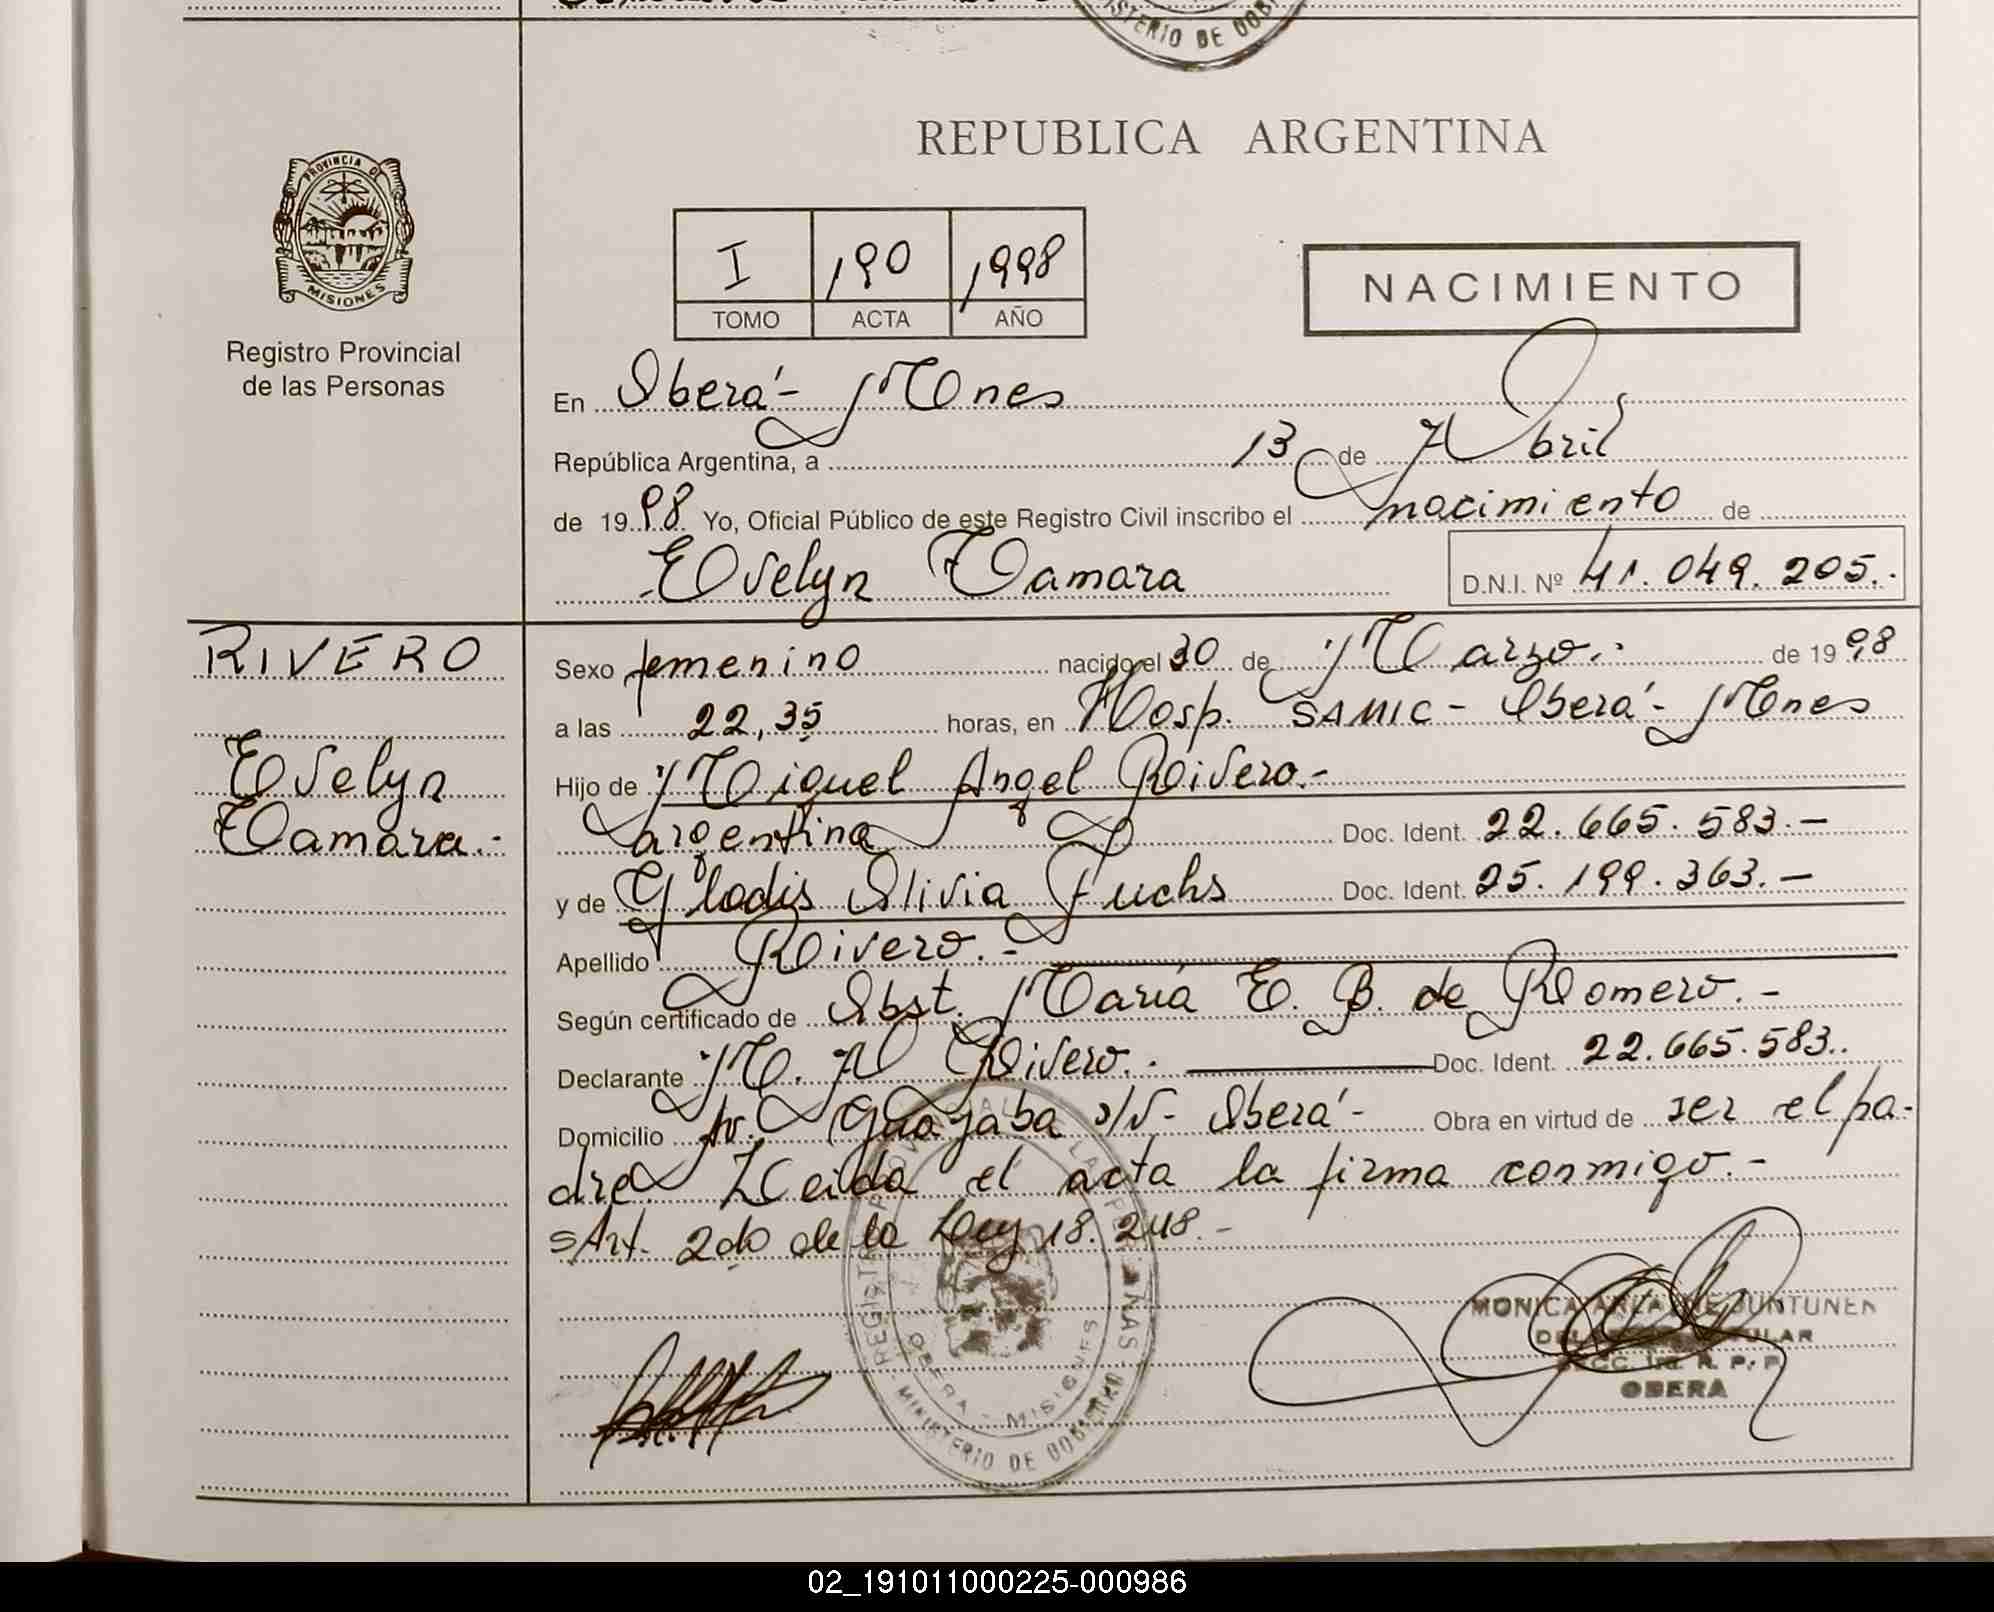 MINISTERIO DE GOBIERNO
PROVINCIA DE
MISIONES
Registro Provincial
de las Personas
REPUBLICA ARGENTINA
I 190 1998
TOMO ACTA AÑO
NACIMIENTO
En Oberá - Mnes
República Argentina, a 13 de Abril
de 1998 Yo, Oficial Público de este Registro Civil inscribo el nacimiento de
Evelyn Tamara D.N.I. Nº 41.049.205.-
RIVERO
Evelyn
Tamara.-
Sexo femenino nacido el 30 de Marzo.- de 1998
a las 22,35 horas, en Hosp. SAMIC - Oberá - Mnes
Hijo de Miguel Angel Rivero.-
argentina Doc. Ident. 22.665.583.-
y de Gladis Olivia Fuchs Doc. Ident. 25.199.363.-
Apellido Rivero.-
Según certificado de Obst. María E. B. de Romero.-
Declarante M. A Rivero.- Doc. Ident. 22.665.583..
Domicilio Av. Guayaba s/N - Oberá - Obra en virtud de ser el pa-
dre Leida el acta la firma conmigo.-
Art. 2do de la Ley 18.248.-
REGISTRO PROVINCIAL DE LAS PERSONAS
OBERA - MISIONES
MINISTERIO DE GOBIERNO
MONICA JUNTUNEN
R. P. P.
OBERA
02_191011000225-000986